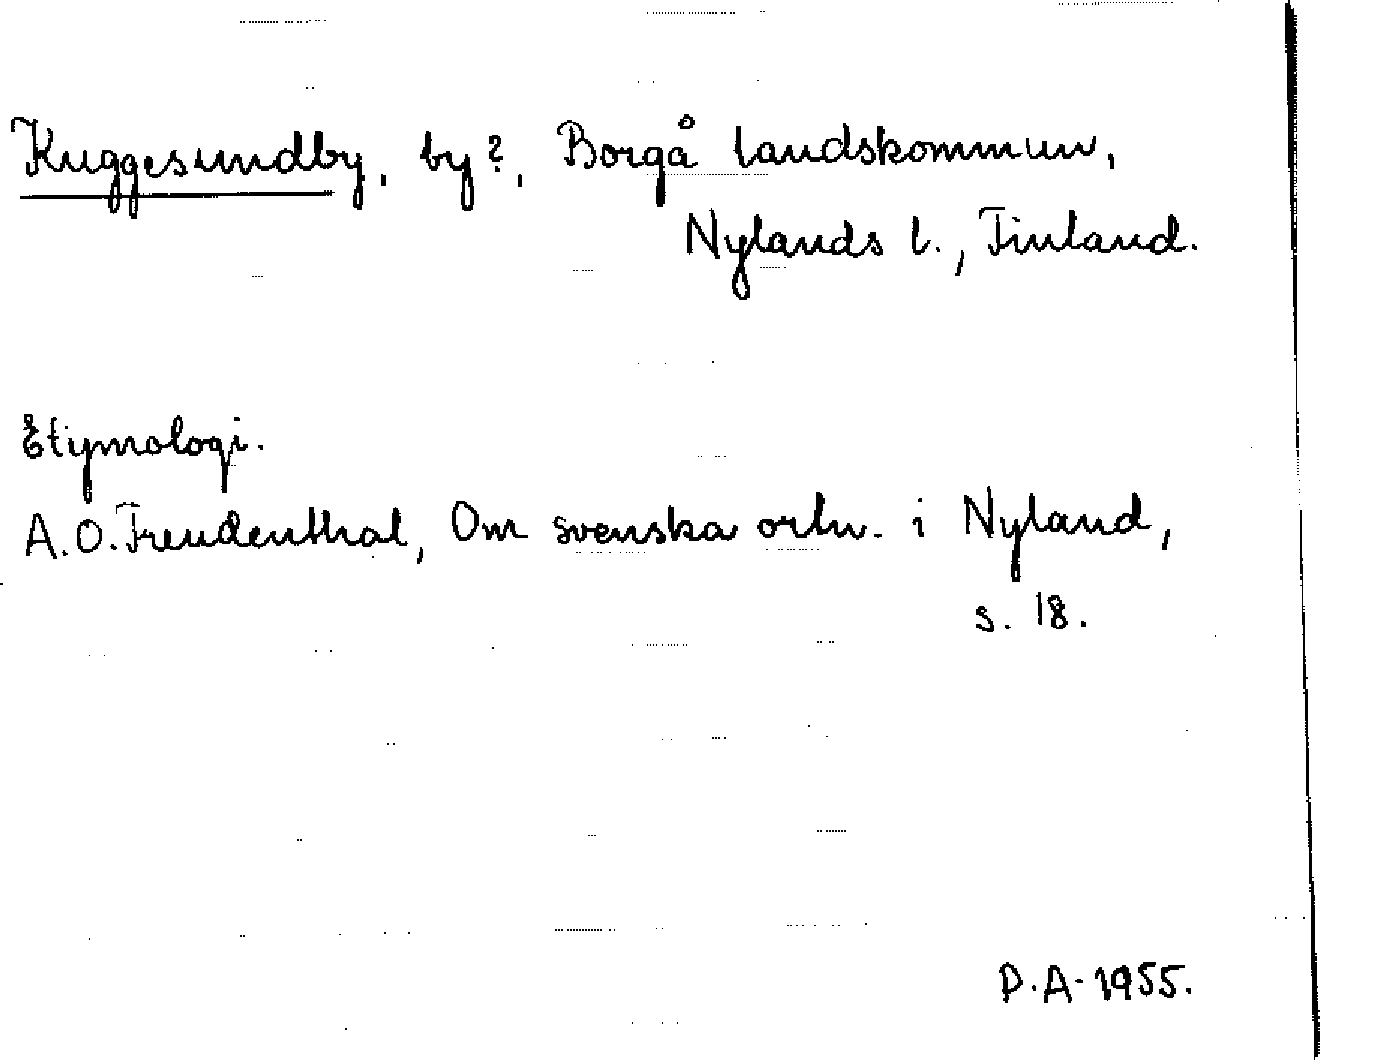 Kuggesundby, by?, Borgå landskommun,
Nylands l., Finland.
Etymologi.
A.O. Freudenthal, Om svenska ortn. i Nyland,
s. 18.
P.A. 1955.